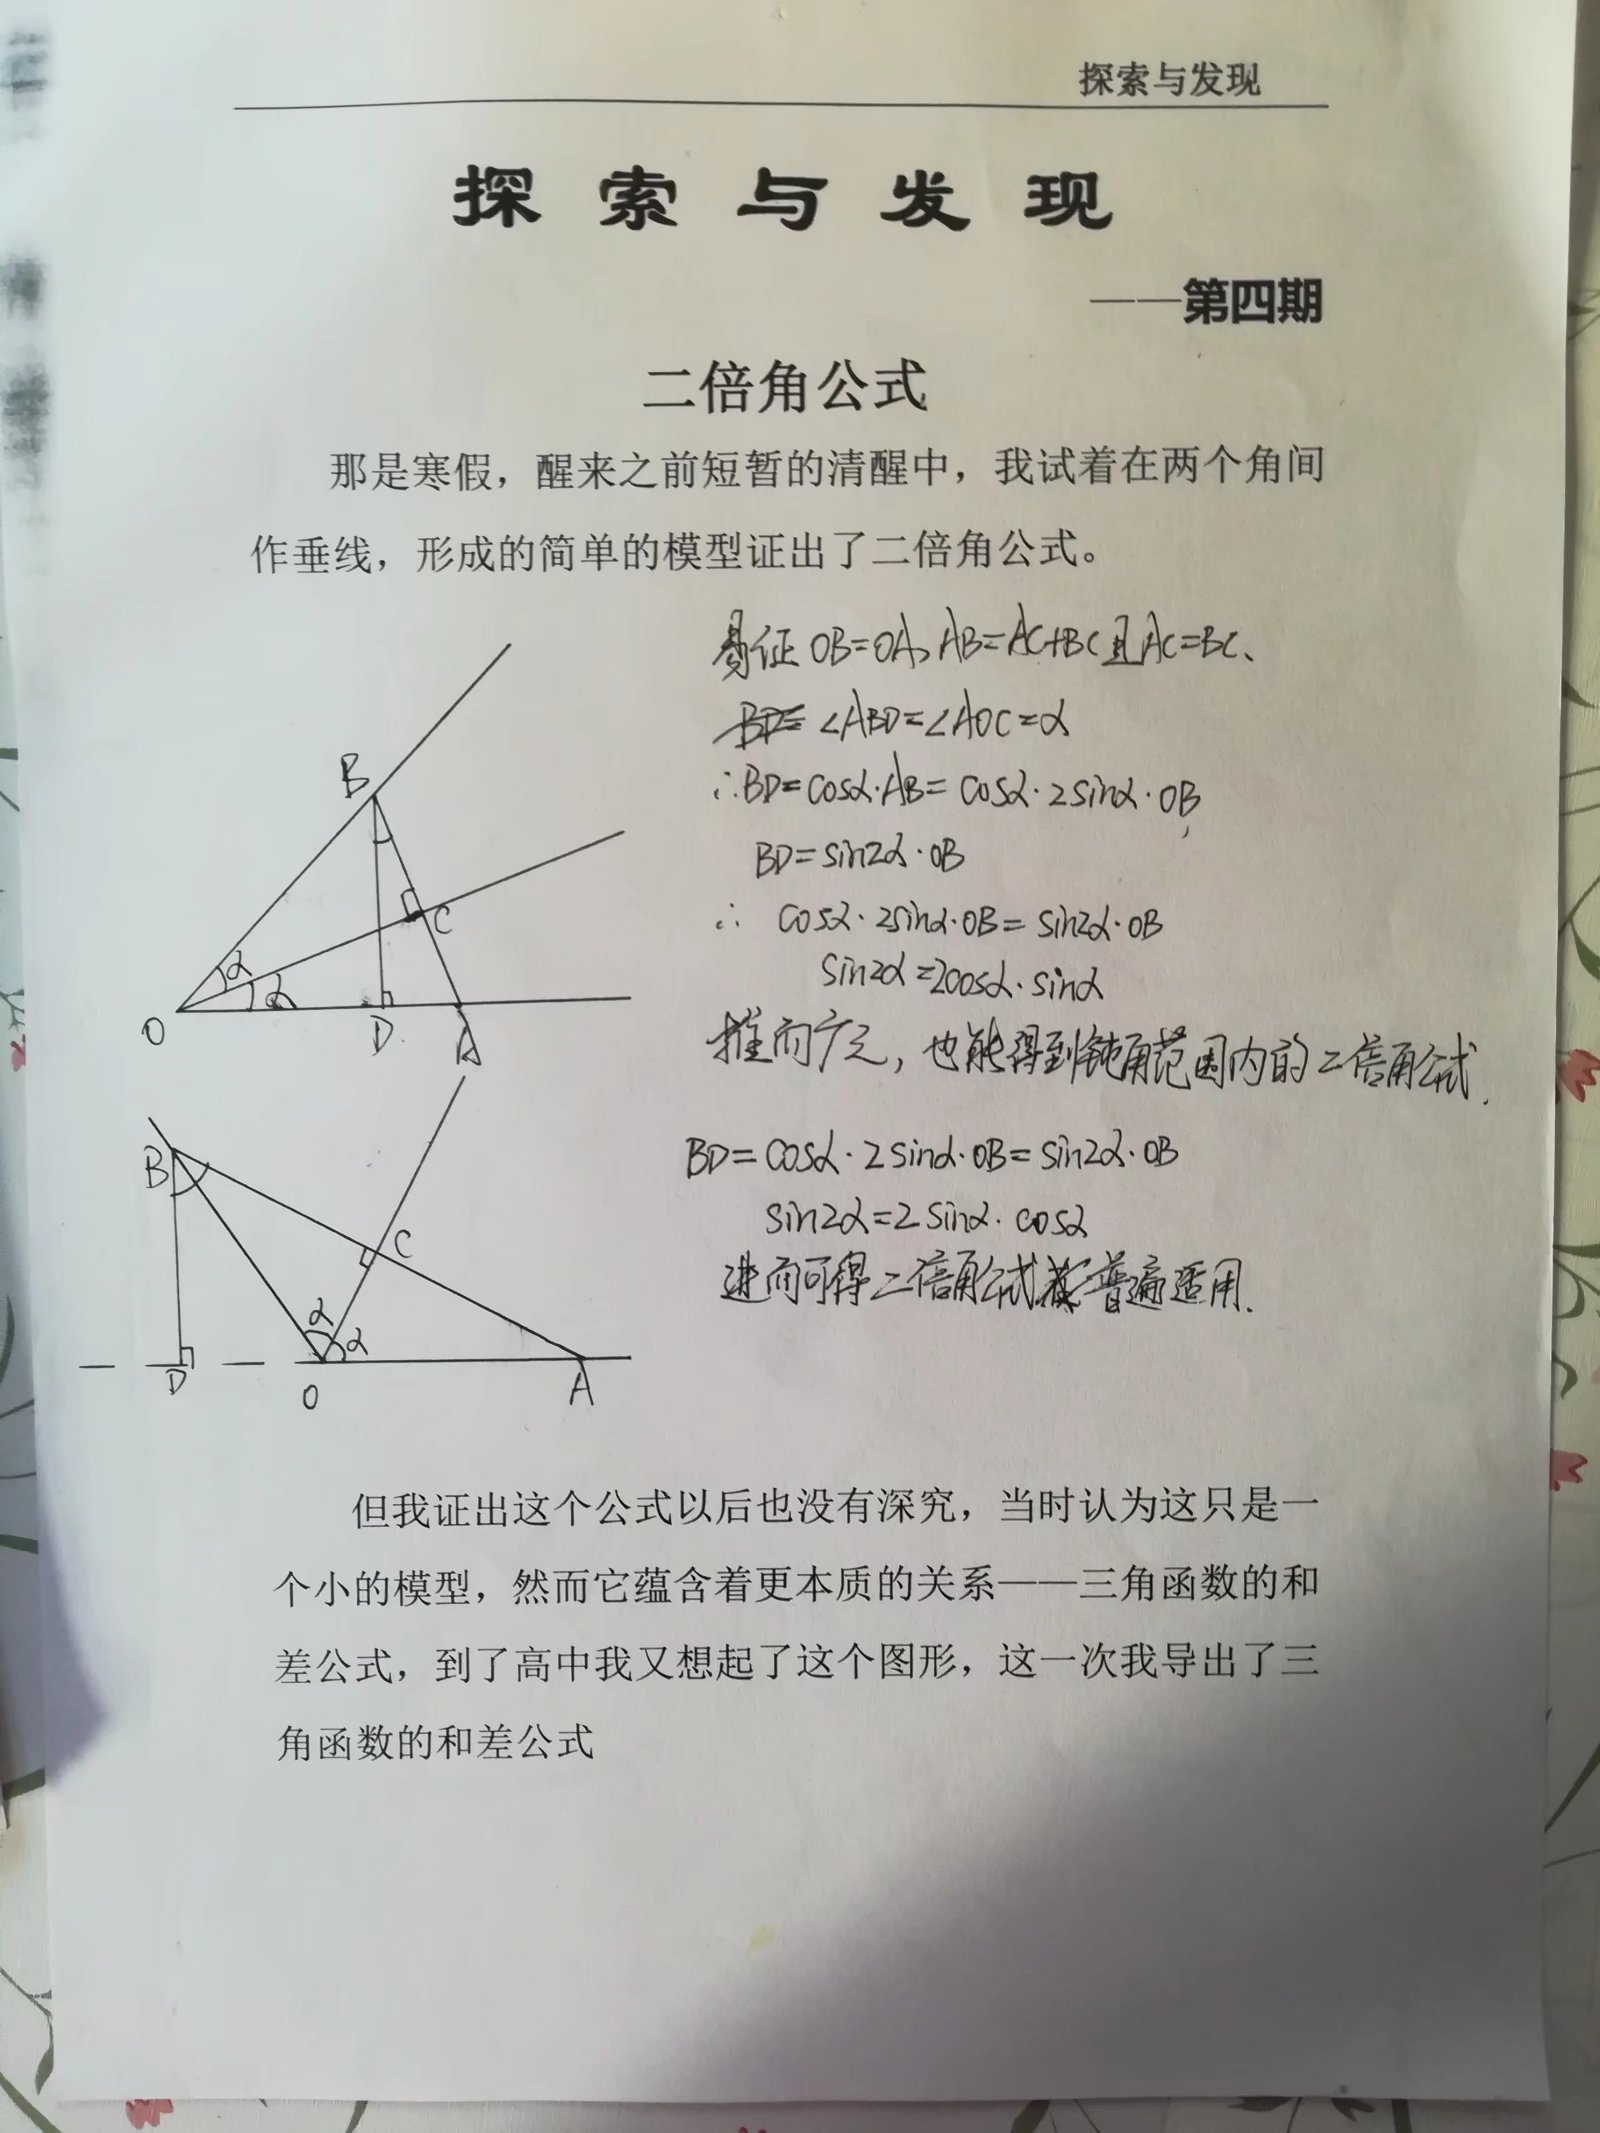 探索与发现
探索与发现
——第四期
二倍角公式
那是寒假，醒来之前短暂的清醒中，我试着在两个角间
作垂线，形成的简单的模型证出了二倍角公式。
易证 OB=OA, AB=AC+BC且AC=BC、
∠ABD=∠AOC=α
∴BD=cosα·AB=cosα·2sinα·OB,
BD=sin2α·OB
∴ cosα·2sinα·OB=sin2α·OB
sin2α=2cosα·sinα
推而广之，也能得到钝角范围内的二倍角公式.
BD=cosα·2sinα·OB=sin2α·OB
sin2α=2sinα·cosα
进而可得二倍角公式普遍适用.
B
C
α
α
O
D
A
B
C
α
α
D
O
A
但我证出这个公式以后也没有深究，当时认为这只是一
个小的模型，然而它蕴含着更本质的关系——三角函数的和
差公式，到了高中我又想起了这个图形，这一次我导出了三
角函数的和差公式